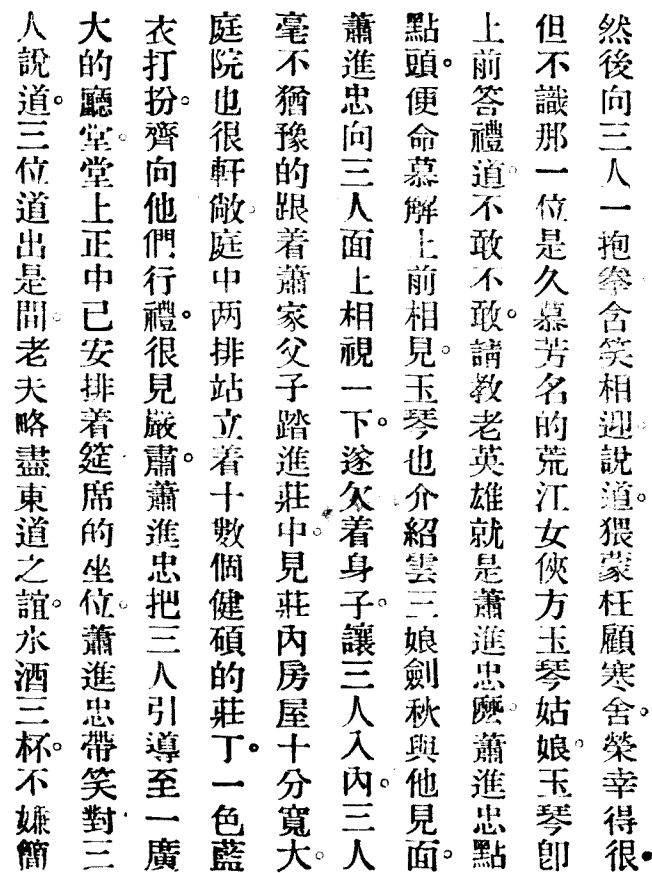 然後向三人一抱拳含笑相迎說道。猥蒙枉顧寒舍。榮幸得很。
但不識那一位是久慕芳名的荒江女俠方玉琴姑娘。玉琴卽
上前答禮道。不敢不敢。請教老英雄就是蕭進忠麽。蕭進忠點
點頭。便命慕解上前相見。玉琴也介紹雲三娘劍秋與他見面。
蕭進忠向三人面上相視一下。遂欠着身子。讓三人入內。三人
毫不猶豫的跟着蕭家父子踏進莊中。見莊內房屋十分寬大。
庭院也很軒敞。庭中两排站立着十數個健碩的莊丁。一色藍
衣打扮。齊向他們行禮。很見嚴肅。蕭進忠把三人引導至一廣
大的廳堂。堂上正中已安排着筵席的坐位。蕭進忠帶笑對三
人說道。三位道出是間。老夫略盡東道之誼。水酒三杯。不嫌簡